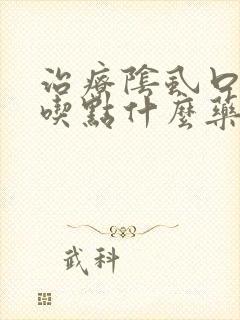 治療陰虱口
喫點什麼藥
武科